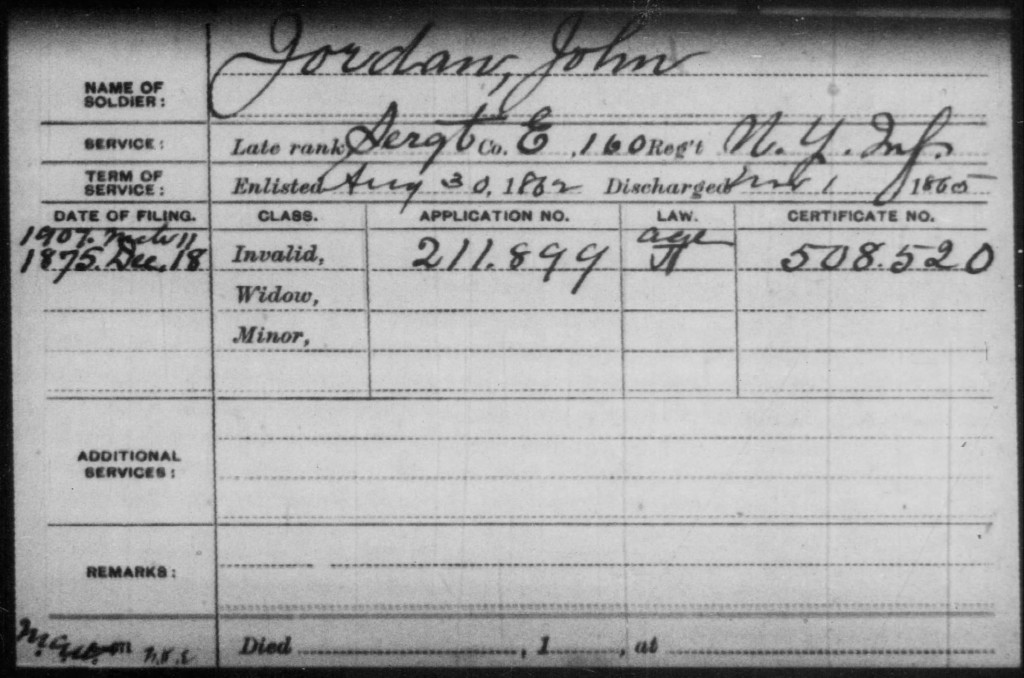 Jordan, John
NAME OF
SOLDIER:
SERVICE: Late rank Sergt Co. E, 160 Reg't N.Y. Inf.
TERM OF
SERVICE: Enlisted Aug 30, 1862 Discharged Nov 1 1865
DATE OF FILING. CLASS. APPLICATION NO. LAW. CERTIFICATE NO.
1907. Mch 11 age
1875. Dec. 18 Invalid, 211.899 508.520
Widow,
Minor,
ADDITIONAL
SERVICES:
REMARKS:
Died , 1 , at